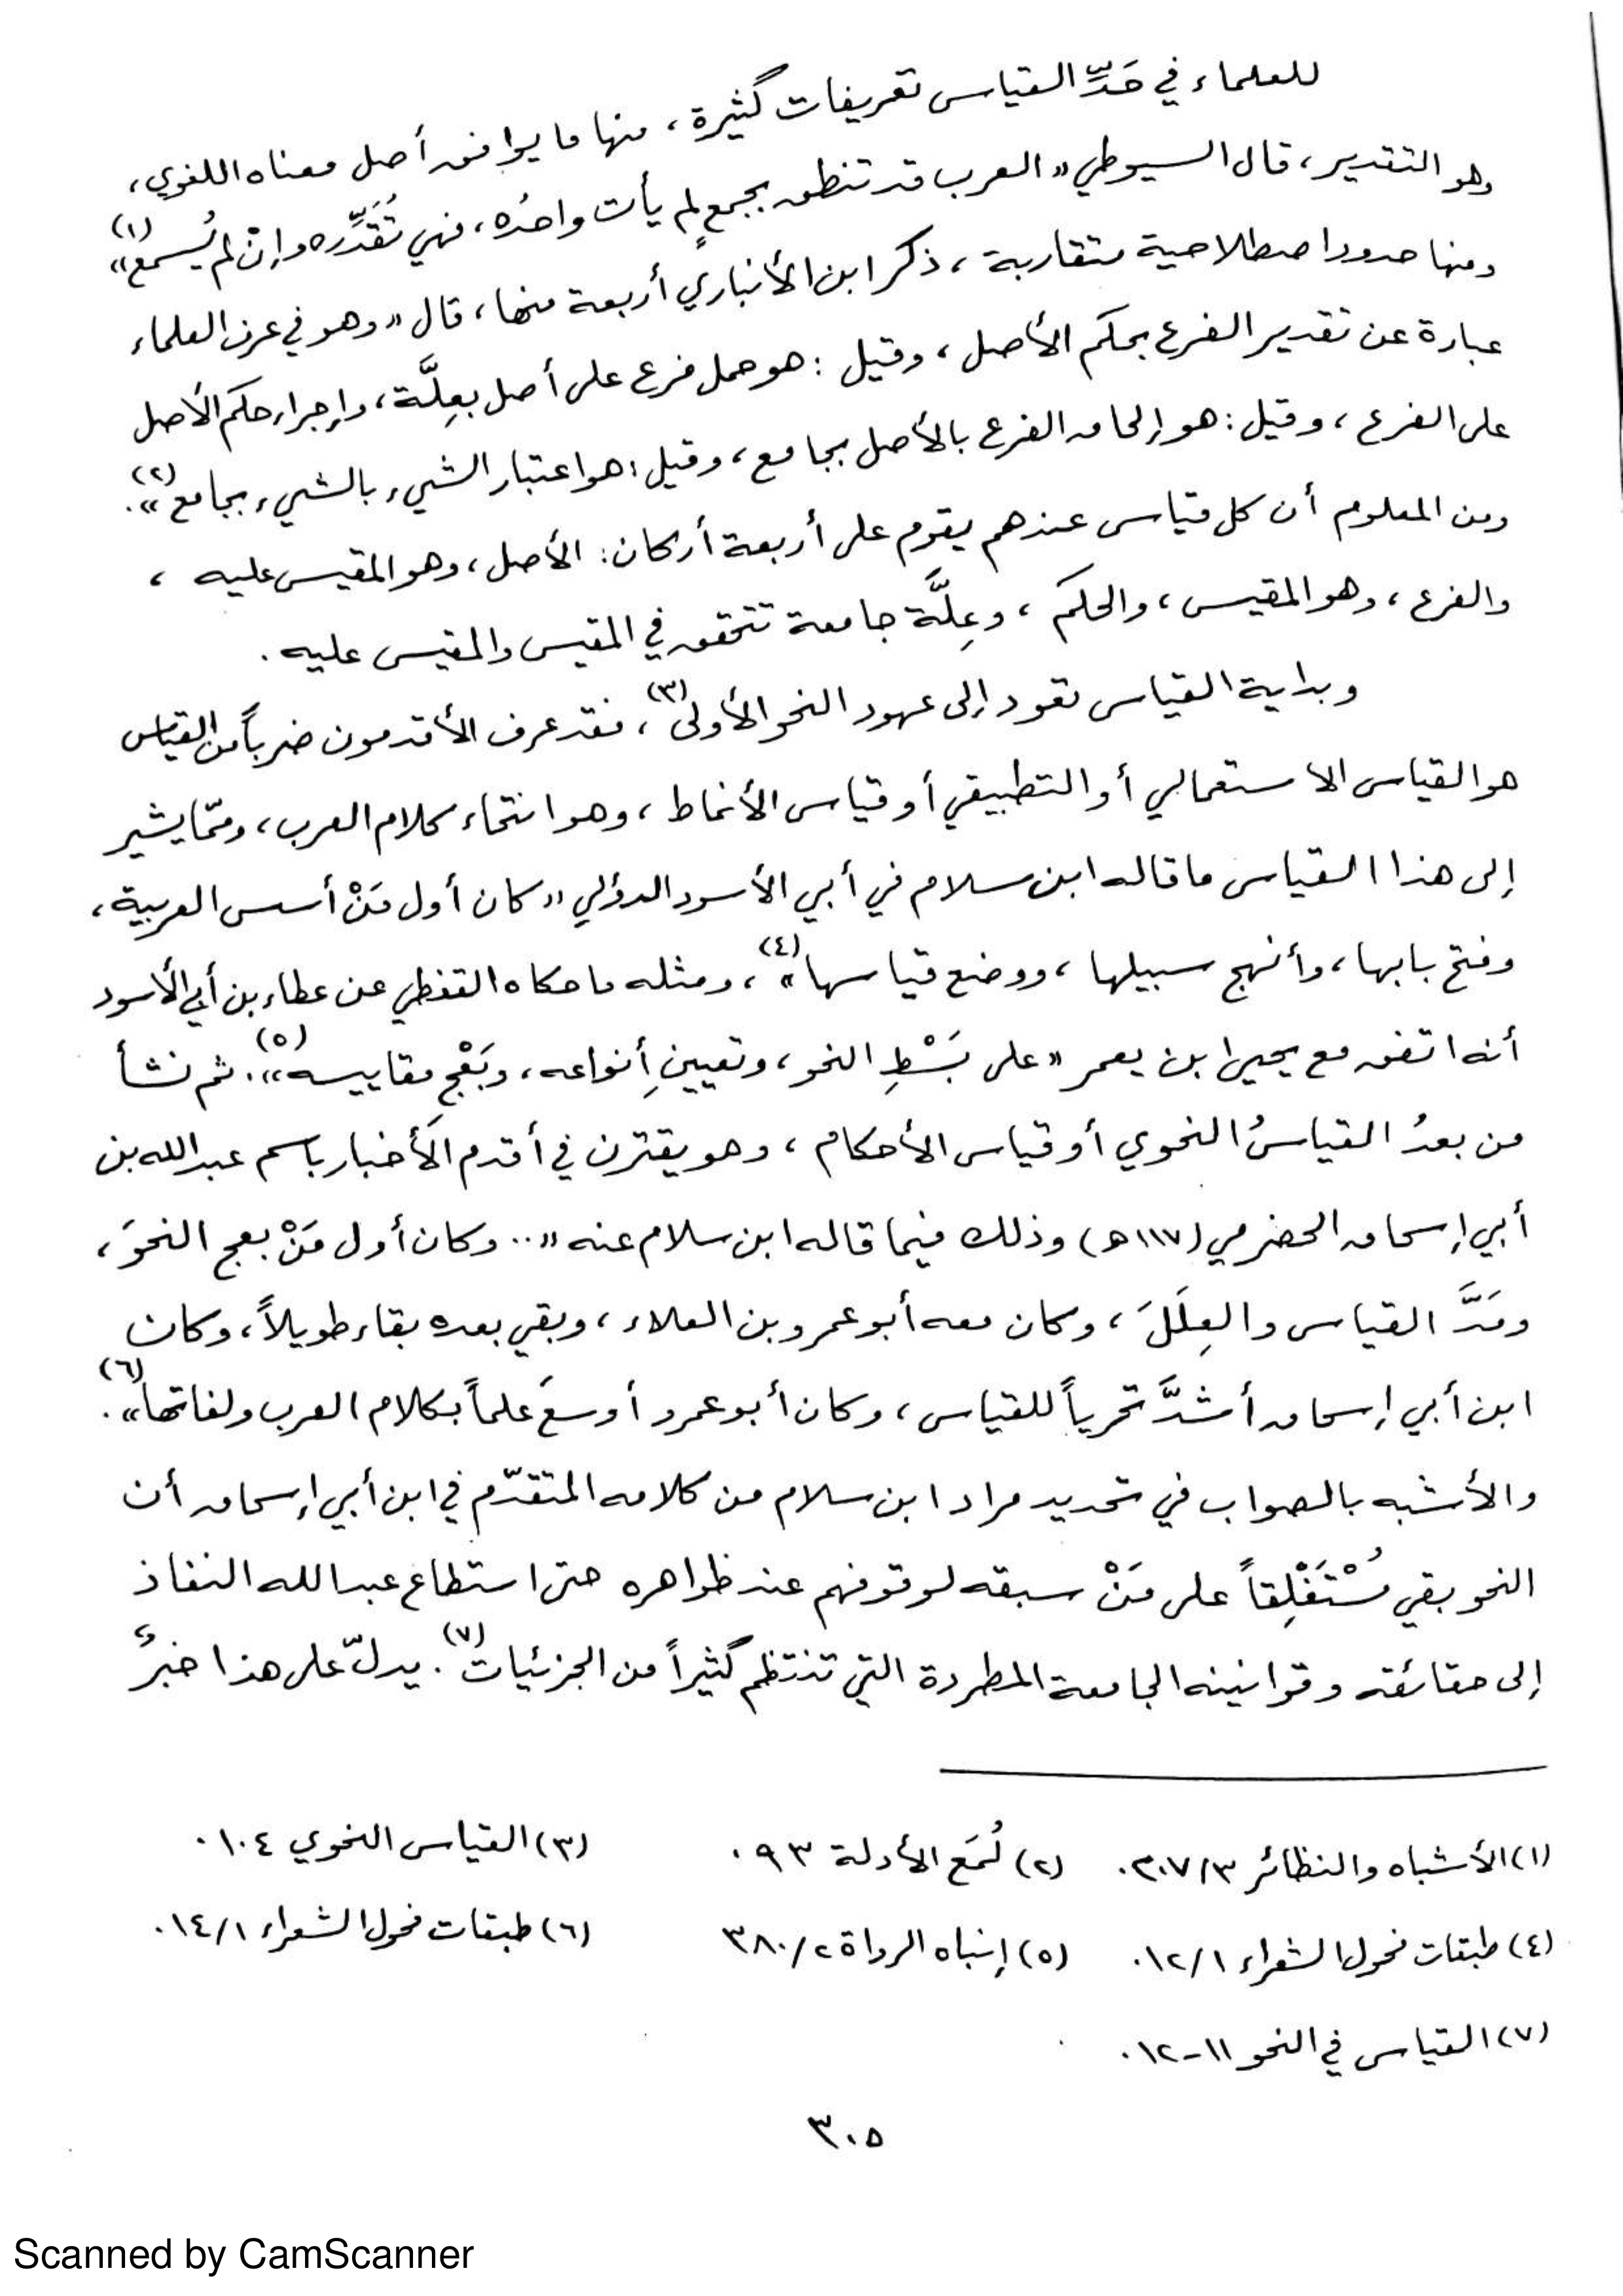 للعلماء في حَدِّ القياس تعريفات كثيرة، منها ما يوافق أصل معناه اللغوي،
وهو التقدير، قال السيوطي «العرب قد تنطق بجمعٍ لم يأت واحدُه، فهي تُقَدِّره وإنْ لم يُسمع»(١)
ومنها حدود اصطلاحية متقاربة، ذكر ابن الأنباري أربعة منها، قال «وهو في عرف العلماء
عبارة عن تقدير الفرع بحكم الأصل، وقيل: هو حمل فرع على أصل بعِلَّة، وإجراء حكم الأصل
على الفرع، وقيل: هو إلحاق الفرع بالأصل بجامع، وقيل: هو اعتبار الشيء بالشيء بجامع»(٢).
ومن المعلوم أن كل قياس عندهم يقوم على أربعة أركان: الأصل، وهو المقيس عليه،
والفرع، وهو المقيس، والحكم، وعِلَّة جامعة تتحقق في المقيس والمقيس عليه.
وبداية القياس تعود إلى عهود النحو الأولى(٣)، فقد عرف الأقدمون ضرباً من القياس
هو القياس الاستعمالي أو التطبيقي أو قياس الأنماط، وهو انتحاء كلام العرب، وممّا يشير
إلى هذا القياس ما قاله ابن سلام في أبي الأسود الدؤلي «كان أول مَنْ أسس العربية،
وفتح بابها، وأنهج سبيلها، ووضع قياسها»(٤)، ومثله ما حكاه القفطي عن عطاء بن أبي الأسود
أنه اتفق مع يحيى ابن يعمر «على بَسْطِ النحو، وتعيينِ أنواعه، وبَعْجِ مقاييسه»(٥). ثم نشأ
من بعدُ القياسُ النحوي أو قياس الأحكام، وهو يقترن في أقدم الأخبار باسم عبدالله بن
أبي إسحاق الحضرمي (١١٧ه) وذلك فيما قاله ابن سلام عنه «.. وكان أول مَنْ بعج النحوَ،
ومَدَّ القياس والعِلَلَ، وكان معه أبو عمرو بن العلاء، وبقي بعده بقاء طويلاً، وكان
ابن أبي إسحاق أشدَّ تحرياً للقياس، وكان أبو عمرو أوسعَ علماً بكلام العرب ولغاتها»(٦).
والأشبه بالصواب في تحديد مراد ابن سلام من كلامه المتقدّم في ابن أبي إسحاق أن
النحو بقي مُسْتَغْلِقاً على مَنْ سبقه لوقوفهم عند ظواهره حتى استطاع عبدالله النفاذ
إلى حقائقه وقوانينه الجامعة المطردة التي تنتظم كثيراً من الجزئيات(٧). يدلّ على هذا خبرٌ
(١) الأشباه والنظائر ٣٠٧/٣. (٢) لُمَع الأدلة ٩٣. (٣) القياس النحوي ١٠٤.
(٤) طبقات فحول الشعراء ١٢/١. (٥) إنباه الرواة ٣٨٠/٢ (٦) طبقات فحول الشعراء ١٤/١.
(٧) القياس في النحو ١١-١٢.
٣٠٥
Scanned by CamScanner